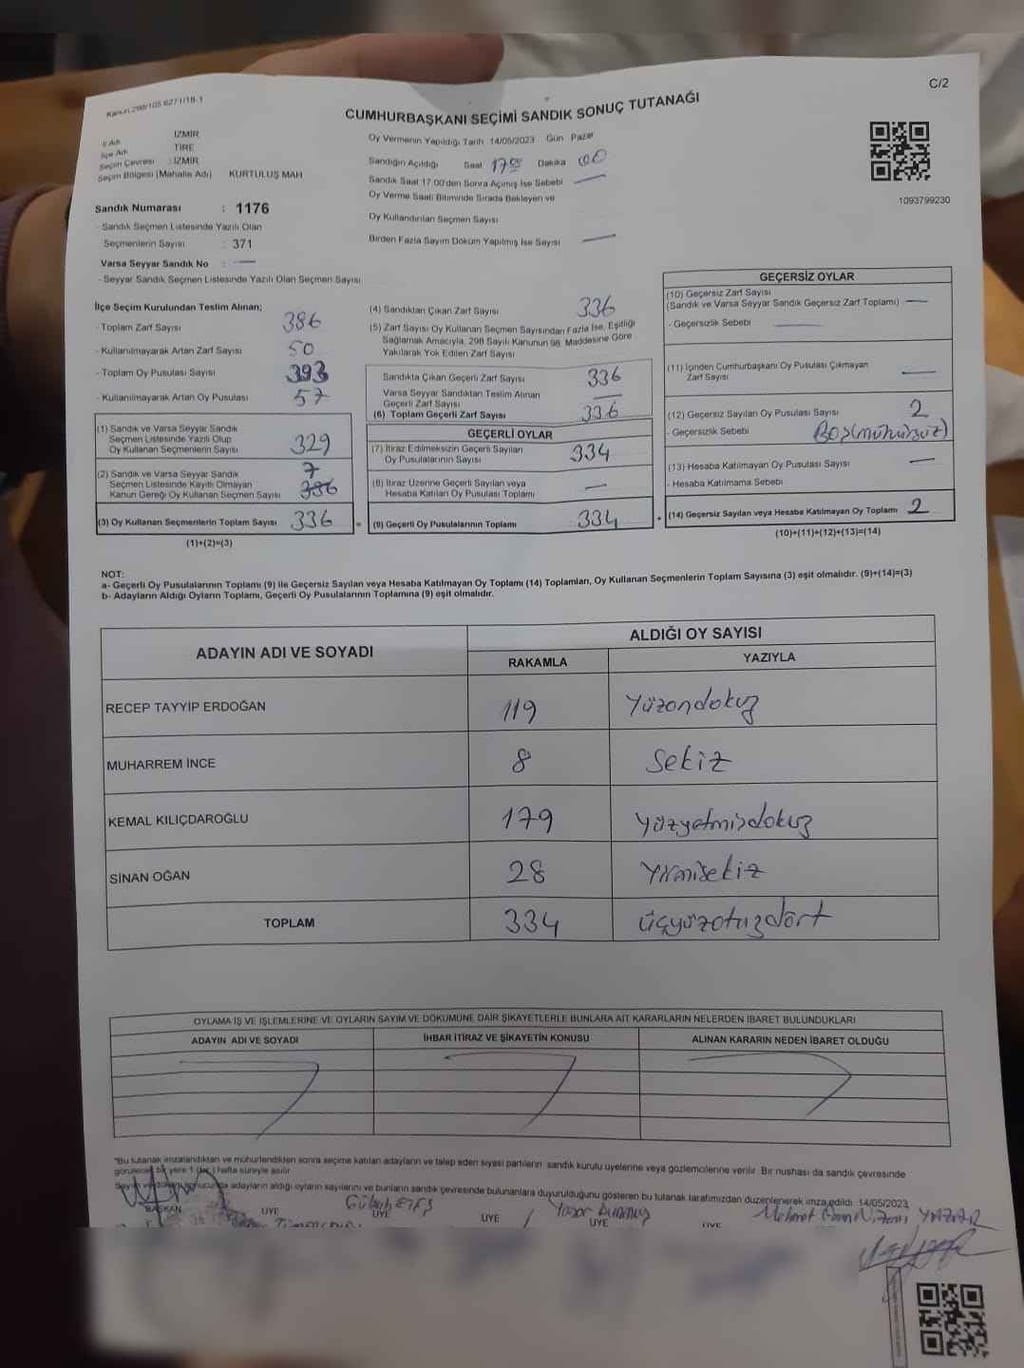 Kanun 298/105 6271/18-1
C/2
CUMHURBAŞKANI SEÇİMİ SANDIK SONUÇ TUTANAĞI
İl Adı İZMİR
İlçe Adı TİRE
Seçim Çevresi : İZMİR
Seçim Bölgesi (Mahalle Adı) KURTULUŞ MAH
Sandık Numarası : 1176
- Sandık Seçmen Listesinde Yazılı Olan
Seçmenlerin Sayısı : 371
Varsa Seyyar Sandık No : —
- Seyyar Sandık Seçmen Listesinde Yazılı Olan Seçmen Sayısı
Oy Vermenin Yapıldığı Tarih 14/05/2023 Gün Pazar
Sandığın Açıldığı Saat 17 00 Dakika 00
Sandık Saat 17:00'den Sonra Açılmış İse Sebebi —
Oy Verme Saati Bitiminde Sırada Bekleyen ve
Oy Kullandırılan Seçmen Sayısı
Birden Fazla Sayım Döküm Yapılmış İse Sayısı —
1093799230
İlçe Seçim Kurulundan Teslim Alınan;
- Toplam Zarf Sayısı 386
- Kullanılmayarak Artan Zarf Sayısı 50
- Toplam Oy Pusulası Sayısı 393
- Kullanılmayarak Artan Oy Pusulası 57
(1) Sandık ve Varsa Seyyar Sandık
Seçmen Listesinde Yazılı Olup
Oy Kullanan Seçmenlerin Sayısı 329
(2) Sandık ve Varsa Seyyar Sandık 7
Seçmen Listesinde Kayıtlı Olmayan
Kanun Gereği Oy Kullanan Seçmen Sayısı
(3) Oy Kullanan Seçmenlerin Toplam Sayısı 336
(1)+(2)=(3)
(4) Sandıktan Çıkan Zarf Sayısı 336
(5) Zarf Sayısı Oy Kullanan Seçmen Sayısından Fazla İse, Eşitliği
Sağlamak Amacıyla, 298 Sayılı Kanunun 98. Maddesine Göre
Yakılarak Yok Edilen Zarf Sayısı
Sandıkta Çıkan Geçerli Zarf Sayısı 336
Varsa Seyyar Sandıktan Teslim Alınan
Geçerli Zarf Sayısı —
(6) Toplam Geçerli Zarf Sayısı 336
GEÇERLİ OYLAR
(7) İtiraz Edilmeksizin Geçerli Sayılan
Oy Pusulalarının Sayısı 334
(8) İtiraz Üzerine Geçerli Sayılan veya
Hesaba Katılan Oy Pusulası Toplamı —
= (9) Geçerli Oy Pusulalarının Toplamı 334
GEÇERSİZ OYLAR
(10) Geçersiz Zarf Sayısı
(Sandık ve Varsa Seyyar Sandık Geçersiz Zarf Toplamı) —
- Geçersizlik Sebebi —
(11) İçinden Cumhurbaşkanı Oy Pusulası Çıkmayan
Zarf Sayısı —
(12) Geçersiz Sayılan Oy Pusulası Sayısı 2
- Geçersizlik Sebebi Boş(mühürsüz)
(13) Hesaba Katılmayan Oy Pusulası Sayısı —
- Hesaba Katılmama Sebebi
+ (14) Geçersiz Sayılan veya Hesaba Katılmayan Oy Toplamı 2
(10)+(11)+(12)+(13)=(14)
NOT:
a- Geçerli Oy Pusulalarının Toplamı (9) ile Geçersiz Sayılan veya Hesaba Katılmayan Oy Toplamı (14) Toplamları, Oy Kullanan Seçmenlerin Toplam Sayısına (3) eşit olmalıdır. (9)+(14)=(3)
b- Adayların Aldığı Oyların Toplamı, Geçerli Oy Pusulalarının Toplamına (9) eşit olmalıdır.
ADAYIN ADI VE SOYADI
ALDIĞI OY SAYISI
RAKAMLA YAZIYLA
RECEP TAYYİP ERDOĞAN 119 Yüzondokuz
MUHARREM İNCE 8 Sekiz
KEMAL KILIÇDAROĞLU 179 Yüzyetmişdokuz
SİNAN OĞAN 28 Yirmisekiz
TOPLAM 334 üçyüzotuzdört
OYLAMA İŞ VE İŞLEMLERİNE VE OYLARIN SAYIM VE DÖKÜMÜNE DAİR ŞİKAYETLERLE BUNLARA AİT KARARLARIN NELERDEN İBARET BULUNDUKLARI
ADAYIN ADI VE SOYADI İHBAR İTİRAZ VE ŞİKAYETİN KONUSU ALINAN KARARIN NEDEN İBARET OLDUĞU
"Bu tutanak imzalandıktan ve mühürlendikten sonra seçime katılan adayların ve talep eden siyasi partilerin sandık kurulu üyelerine veya gözlemcilerine verilir. Bir nüshası da sandık çevresinde
görülecek bir yere 1 (bir) hafta süreyle asılır
adayların aldığı oyların sayılarını ve bunların sandık çevresinde bulunanlara duyurulduğunu gösteren bu tutanak tarafımızdan düzenlenerek imza edildi. 14/05/2023
BAŞKAN ÜYE ÜYE ÜYE ÜYE ÜYE
Mehmet YAZAR